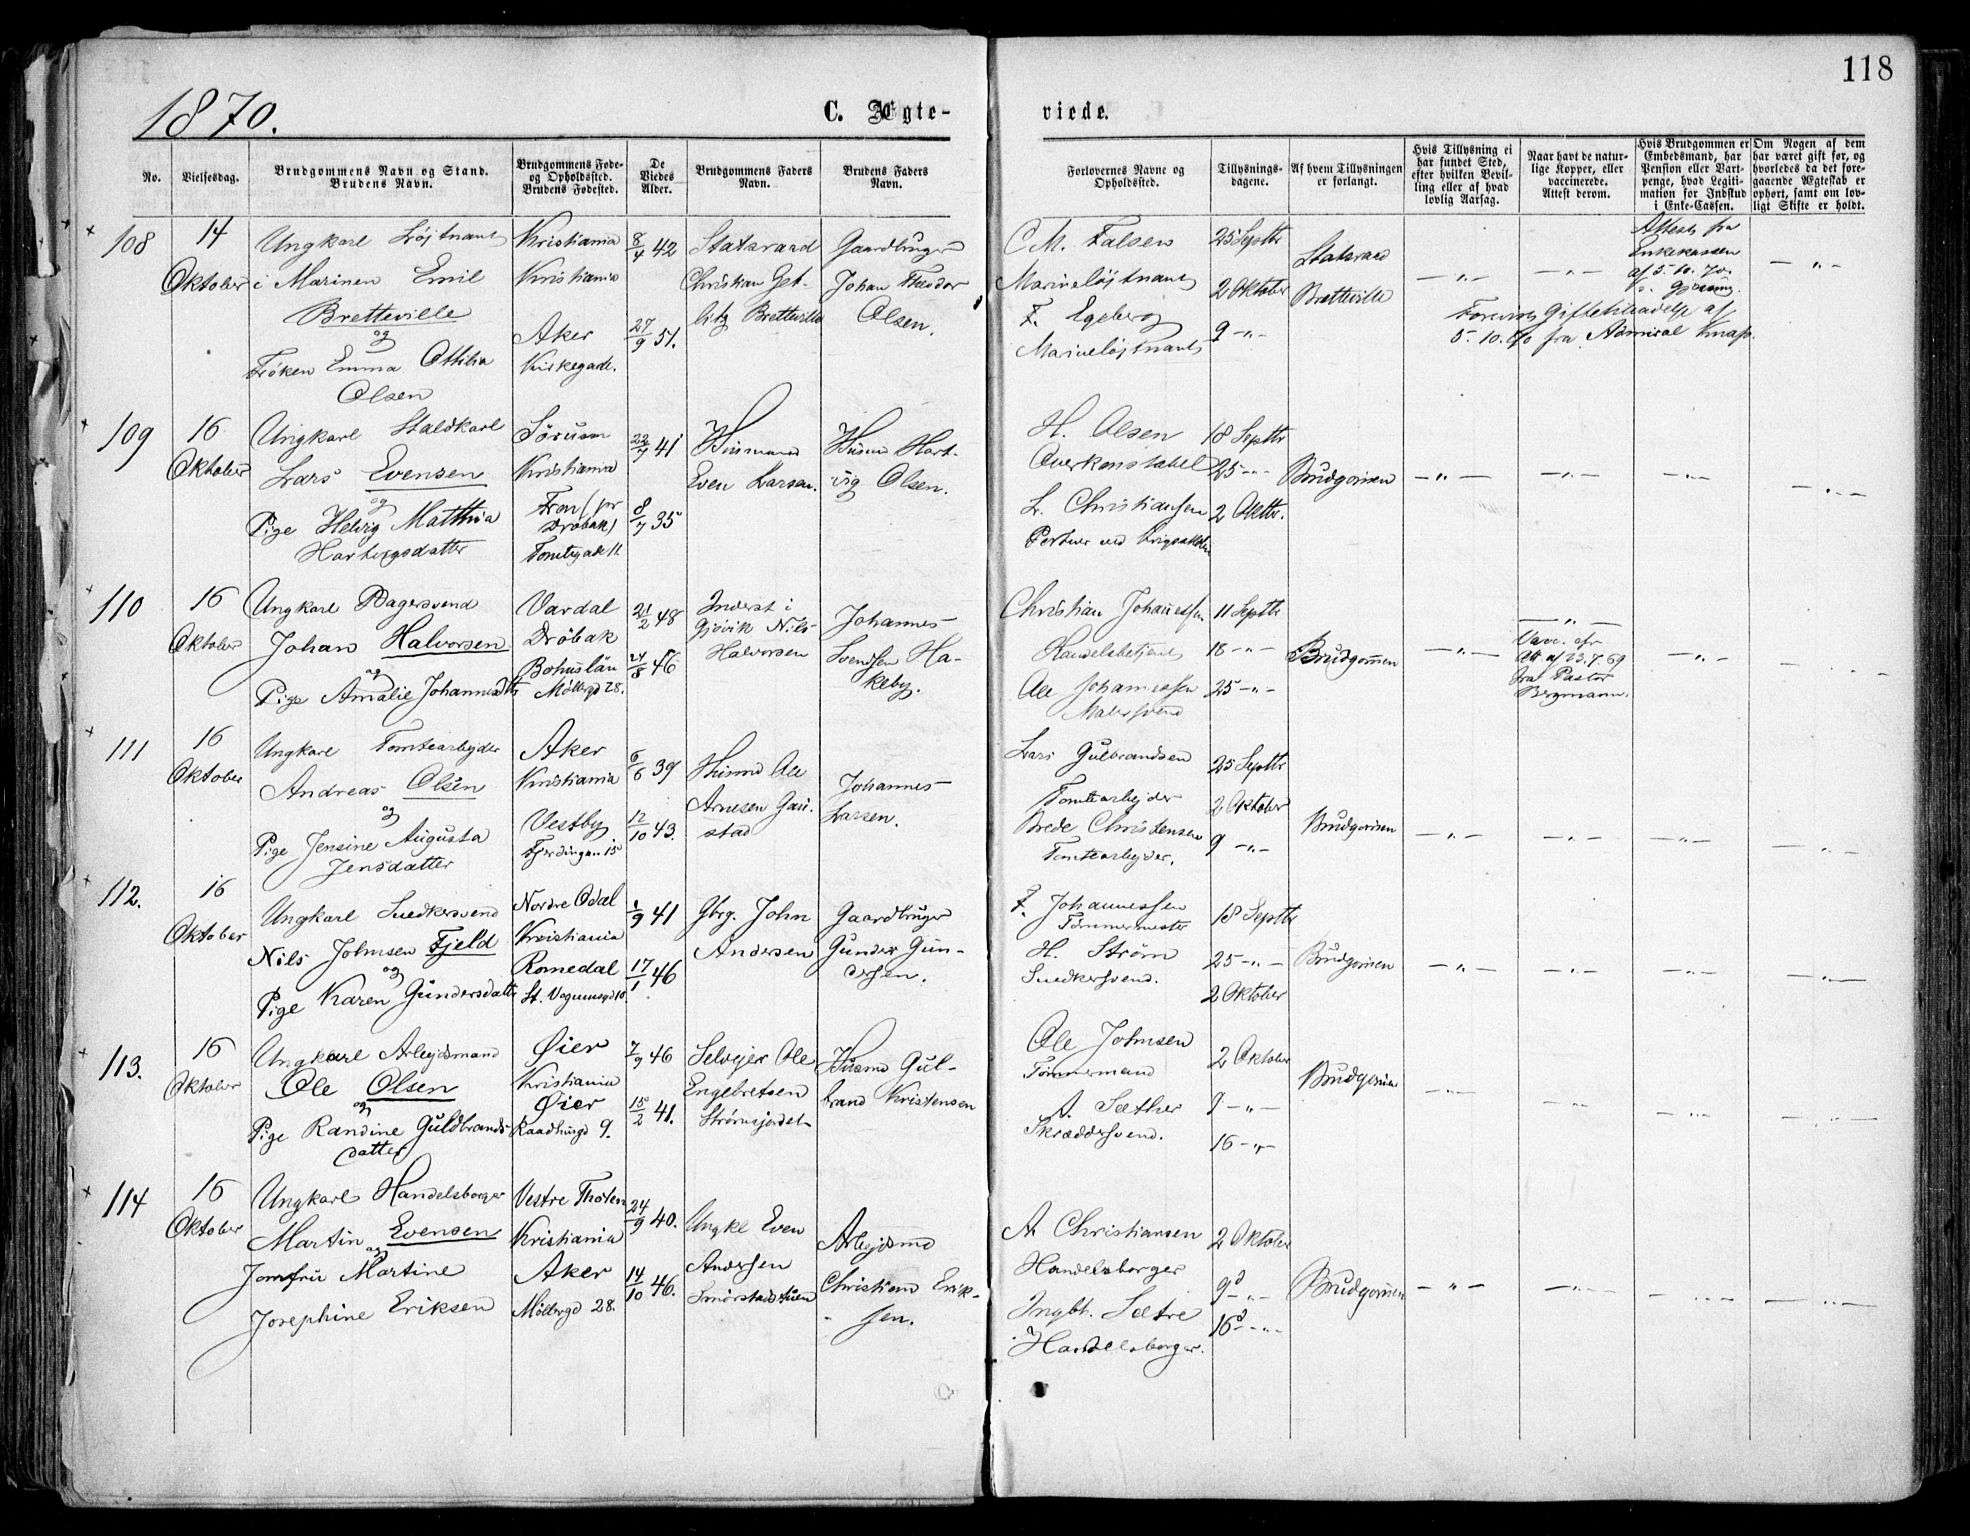 118
1870.
C. Ægte-
viede.
No.
Vielsesdag.
Brudgommens Navn og Stand.
Brudens Navn.
Brudgommens Føde-
og Opholdssted.
Brudens Fødested.
De
Viedes
Alder.
Brudgommens Faders
Navn.
Brudens Faders
Navn.
Forlovernes Navne og
Opholdssted.
Tillysnings-
dagene.
Af hvem Tillysningen
er forlangt.
Hvis Tillysning ei
har fundet Sted,
efter hvilken Bevil-
ling eller af hvad
lovlig Aarsag.
Naar havt de natur-
lige Kopper, eller
vaccinerede.
Attest derom.
Hvis Brudgommen er
Embedsmand, har
Pension eller Vart-
penge, hvad Legiti-
mation for Indskud
i Enke-Cassen.
Om Nogen af dem
har været gift før, og
hvorledes da det fore-
gaaende Ægteskab er
ophørt, samt om lov-
ligt Skifte er holdt.
108
14
Oktober
Ungkarl Løjtnant
i Marinen Emil
Bretteville
og
Frøken Emma Othilia
Olsen
Kristiania
Kristiania
Aker
Kirkegade.
8/4 42
27/9 51.
Statsraad
Christian Zet-
litz Bretteville
Gaardbruger
Johan Theodor
Olsen.
C M. Falsen
Marineløjtnant
F. Egeberg
Marineløjtnant
25 Septbr
2 Oktober
9 -"-
Statsraad
Bretteville
-"-
-"-
Attest fra
Enkekassen
af 5. 10. 70
-"-
Foreviist Giftetilladelse af
5. 10. 70 fra Admiral Knap.
109
16
Oktober
Ungkarl Staldkarl
Lars Evensen
og
Pige Helvig Matthia
Hartvigsdatter
Sørum
Kristiania
Fron (pr
Drøbak)
Tomtegade 11.
22/7 41
8/7 35
Husmand
Even Larsen.
Husmd Hart-
vig Olsen.
H. Olsen
Overkonstabel
L. Christiansen
Portner ved Krigsskolen
18 Septbr
25 -"-
2 Oktbr.
Brudgommen
-"-
-"-
-"-
-"-
110
16
Oktober
Ungkarl Bagersvend
Johan Halvorsen
og
Pige Amalie Johannesdtr
Vardal
Drøbak
Bohuslän
Møllergd 28.
21/2 48
24/8 46
Inderst i
Gjøvik Nils
Halvorsen
Johannes
Svendsen Ha-
keby.
Christian Johannessen
Handelsbetjent
Ole Johannessen
Malersvend
11 Septbr
18 -"-
25 -"-
Brudgommen
-"-
-"-
Vacc. efr
Att af 23. 7. 69
fra Pastor
Bergmann.
-"-
111
16
Oktober
Ungkarl Tomtearbejder
Andreas Olsen
og
Pige Jensine Augusta
Jensdatter
Aker
Kristiania
Vestby
Fjerdingen 15
6/6 39
12/10 43.
Husmd Ole
Arnesen Gau-
stad
Johannes
Larsen.
Lars Gulbrandsen
Tomtearbejder
Brede Christensen
Tomtearbejder.
25 Septbr
2 Oktober
9 -"-
Brudgommen
-"-
-"-
-"-
-"-
112.
16
Oktober
Ungkarl Snedkersvend
Nils Johnsen Fjeld
og
Pige Karen Gundersdatter
Nordre Odal
Kristiania
Romedal
St. Vognmgd 10.
1/9 41
17/1 46
Gbrg. John
Andersen
Gaardbruger
Gunder Gun-
dersen.
F. Johannessen
Tømmermester
H. Strøm
Snedkersvend.
18 Septbr
25 -"-
2 Oktober
Brudgommen
-"-
-"-
-"-
-"-
113.
16
Oktober
Ungkarl Arbejdsmand
Ole Olsen
og
Pige Randine Guldbrands-
datter
Øier
Kristiania
Øier
Raadhusgd 9.
7/9 46
15/2 41.
Selvejer Ole
Engebretsen
Strømsjordet
Husmd Gul-
brand Kristensen
Ole Johnsen
Tømmermand
A. Sæther
Skræddersvend.
2 Oktober
9 -"-
16 -"-
Brudgommen
-"-
-"-
-"-
-"-
114
16
Oktober
Ungkarl Handelsborger
Martin Evensen
og
Jomfru Martine
Josephine Eriksen
Vestre Thoten
Kristiania
Aker
Møllergd 28.
24/9 40.
14/10 46.
Ungkl Even
Andersen
Smørstadstuen
Arbejdsmd
Christian Erik-
sen.
A. Christiansen
Handelsborger
Ingbr. Sætre
Handelsborger.
2 Oktober
9d -"-
16d -"-
Brudgommen
-"-
-"-
-"-
-"-